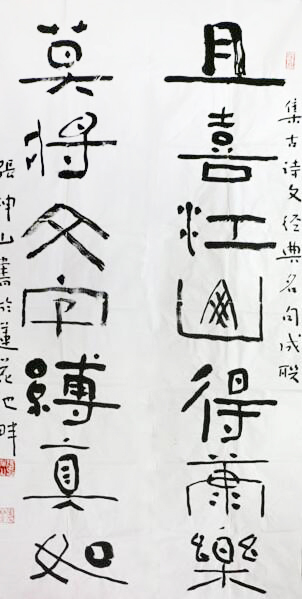 集古诗文经典名句成联
且喜江山得康樂
莫將文字縛真如
張坤山書於蓮花池畔